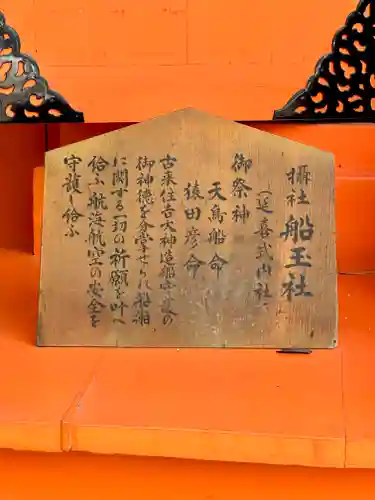 摂社 船玉社
(延喜式内社)
御祭神
天鳥船命
猿田彦命
古来住吉大神造船安泰の
御神徳を分掌せられ船舶
に関する一切の祈願を叶へ
給ふ航海航空の安全を
守護し給ふ